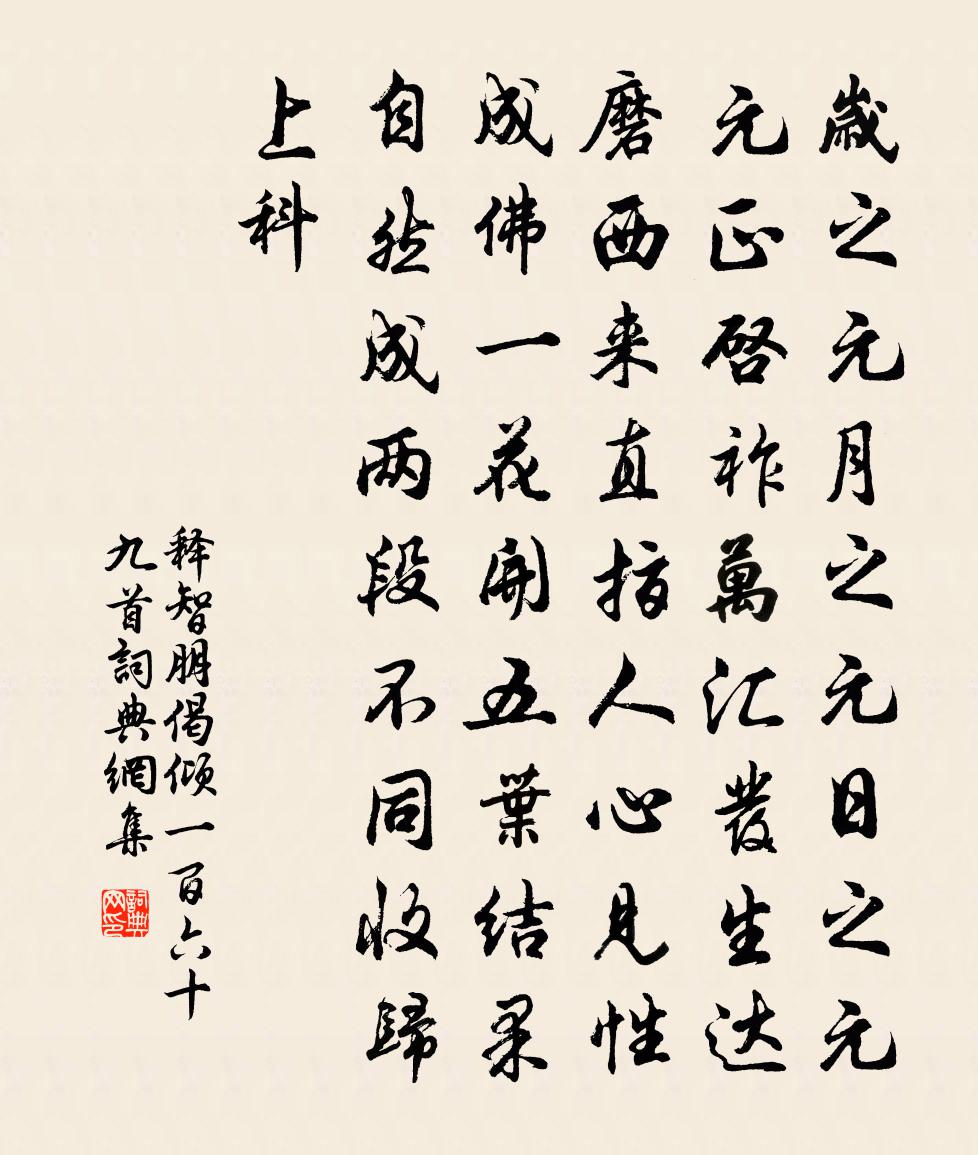 歲之元月之元日之元
元正啓祚萬汇發生达
磨西来直指人心見性
成佛一花開五葉结果
自然成两段不同收歸
上科
释智朋偈傾一百六十
九首詞典網集
詞典网印